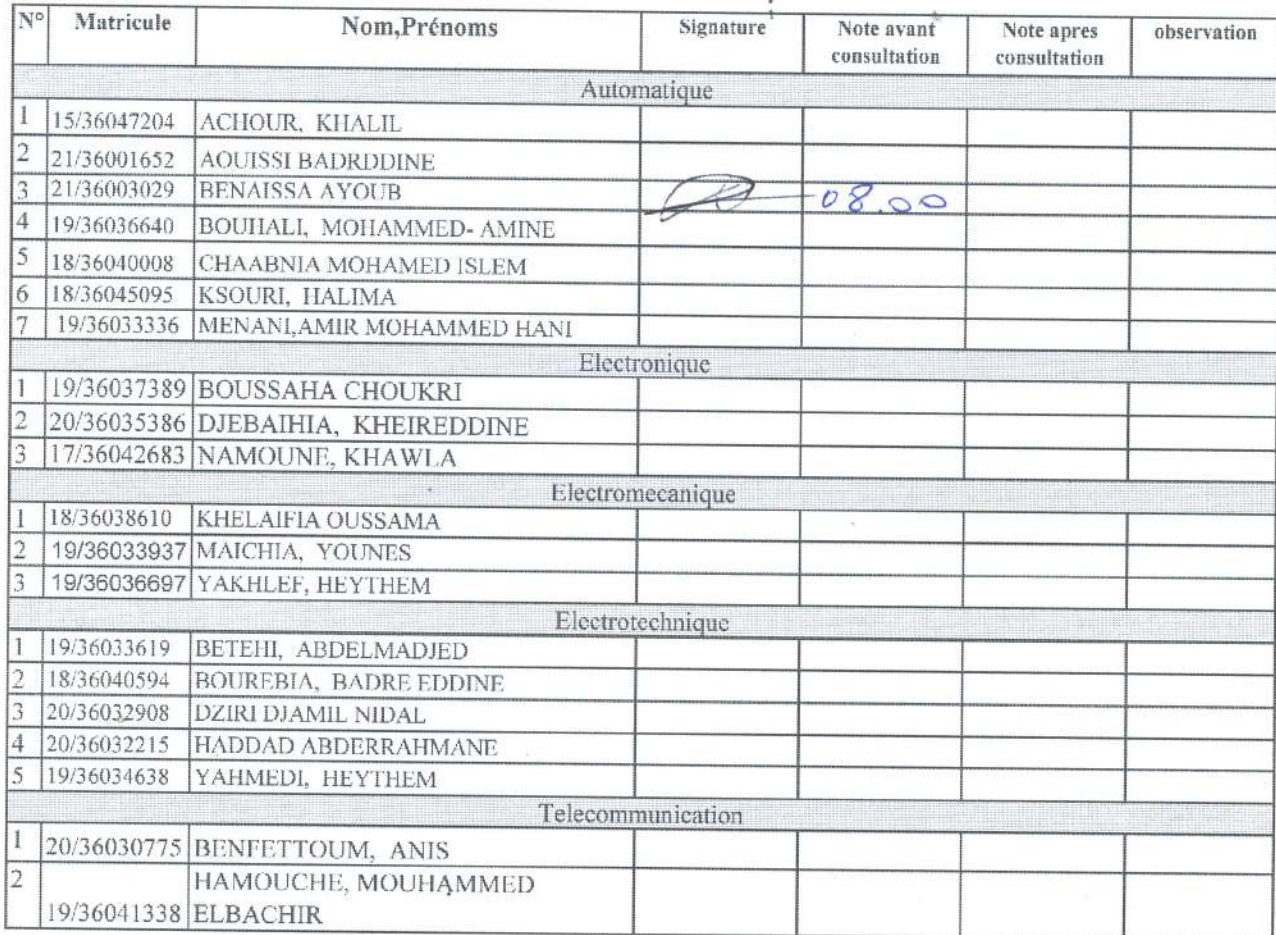 N° Matricule Nom,Prénoms Signature Note avant consultation Note apres consultation observation
Automatique
1 15/36047204 ACHOUR, KHALIL
2 21/36001652 AOUISSI BADRDDINE
3 21/36003029 BENAISSA AYOUB 08.00
4 19/36036640 BOUHALI, MOHAMMED- AMINE
5 18/36040008 CHAABNIA MOHAMED ISLEM
6 18/36045095 KSOURI, HALIMA
7 19/36033336 MENANI,AMIR MOHAMMED HANI
Electronique
1 19/36037389 BOUSSAHA CHOUKRI
2 20/36035386 DJEBAIHIA, KHEIREDDINE
3 17/36042683 NAMOUNE, KHAWLA
Electromecanique
1 18/36038610 KHELAIFIA OUSSAMA
2 19/36033937 MAICHIA, YOUNES
3 19/36036697 YAKHLEF, HEYTHEM
Electrotechnique
1 19/36033619 BETEHI, ABDELMADJED
2 18/36040594 BOUREBIA, BADRE EDDINE
3 20/36032908 DZIRI DJAMIL NIDAL
4 20/36032215 HADDAD ABDERRAHMANE
5 19/36034638 YAHMEDI, HEYTHEM
Telecommunication
1 20/36030775 BENFETTOUM, ANIS
2 HAMOUCHE, MOUHAMMED
19/36041338 ELBACHIR